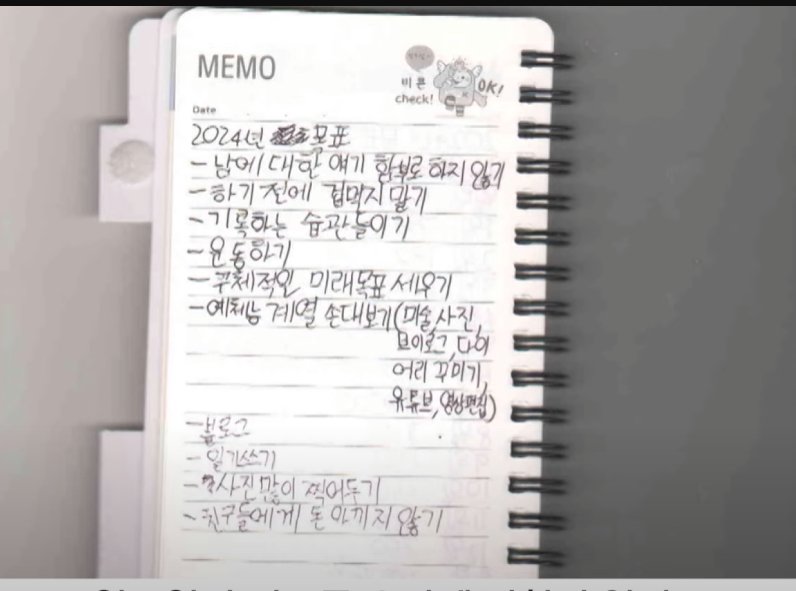 MEMO
비큰
check!
OK!
Date
2024년 목표
- 남에 대한 얘기 함부로 하지 않기
- 하기 전에 겁먹지 말기
- 기록하는 습관들이기
- 운동하기
- 구체적인 미래목표 세우기
- 예체능 계열 손대보기(미술, 사진,
브이로그, 다이
어리 꾸미기,
유튜브, 영상편집)
- 블로그
- 일기쓰기
- 사진 많이 찍어두기
- 친구들에게 돈 아끼지 않기